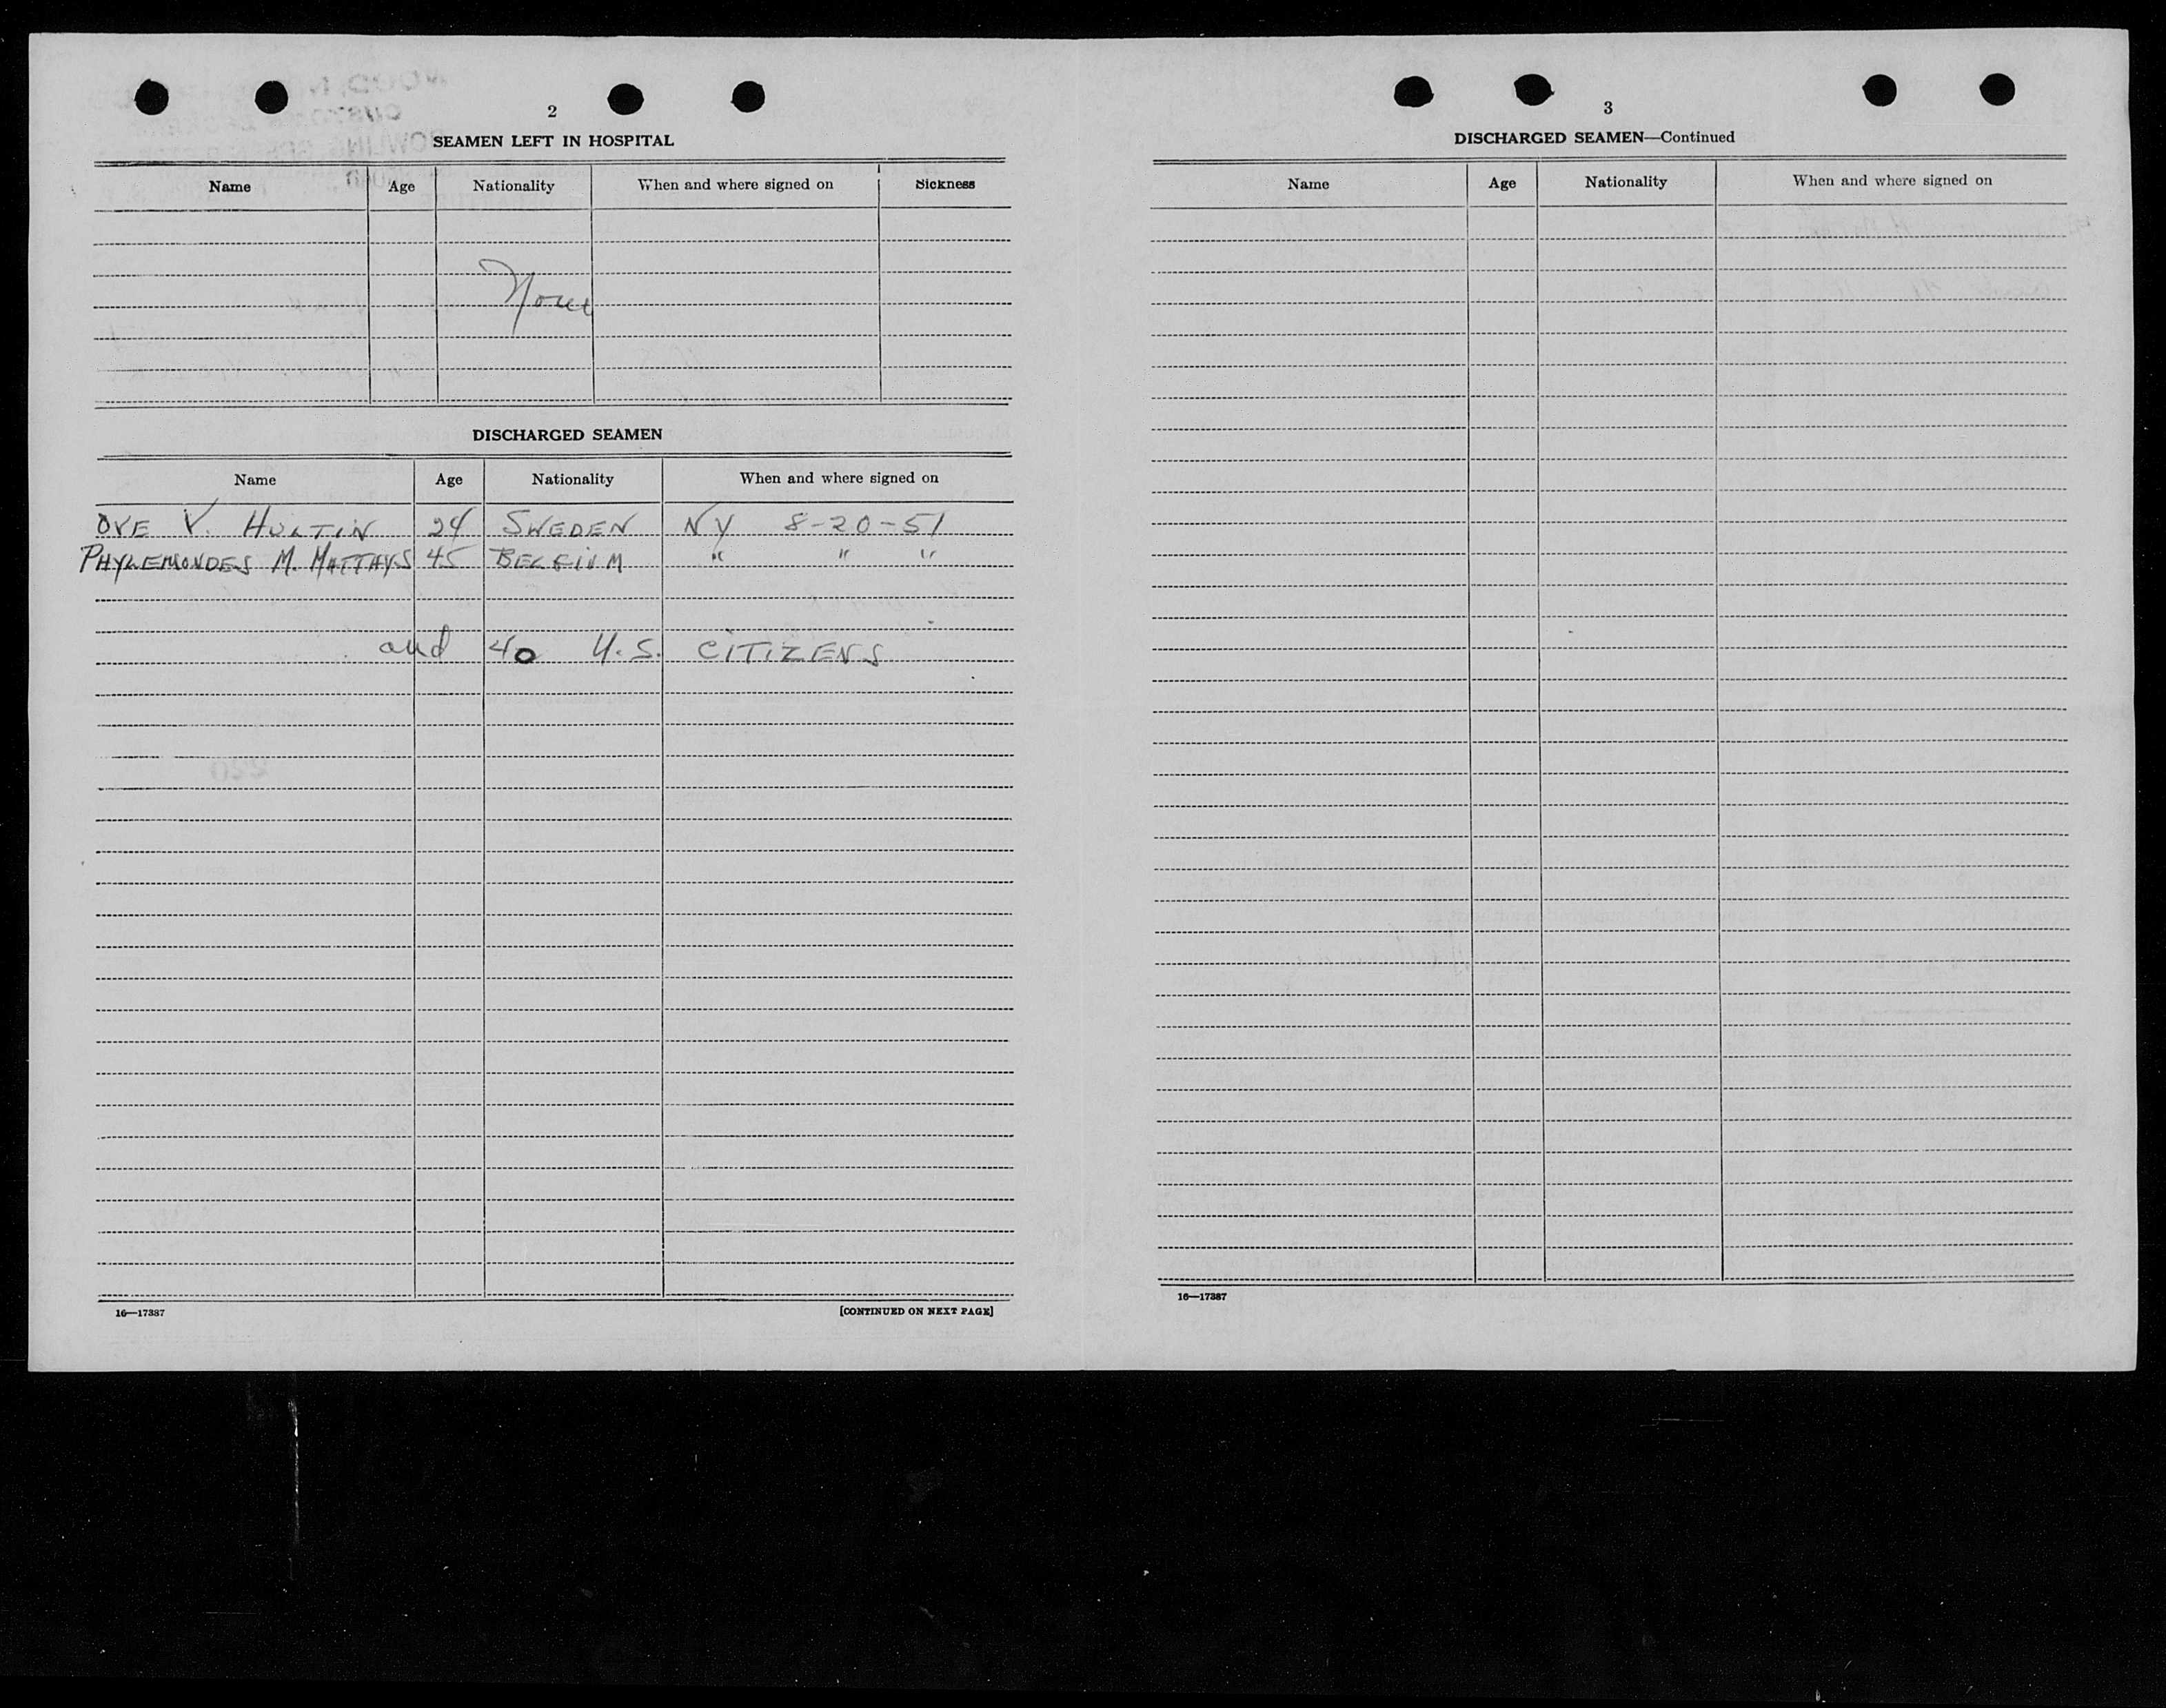 2
SEAMEN LEFT IN HOSPITAL
Name Age Nationality When and where signed on Sickness
None
DISCHARGED SEAMEN
Name Age Nationality When and where signed on
OVE V. HULTIN 24 SWEDEN NY 8-20-51
PHYLEMONDES M. MATTHYS 45 BELGIUM " " "
and 40 U.S. CITIZENS
16—17387 [CONTINUED ON NEXT PAGE]
3
DISCHARGED SEAMEN—Continued
Name Age Nationality When and where signed on
16—17387